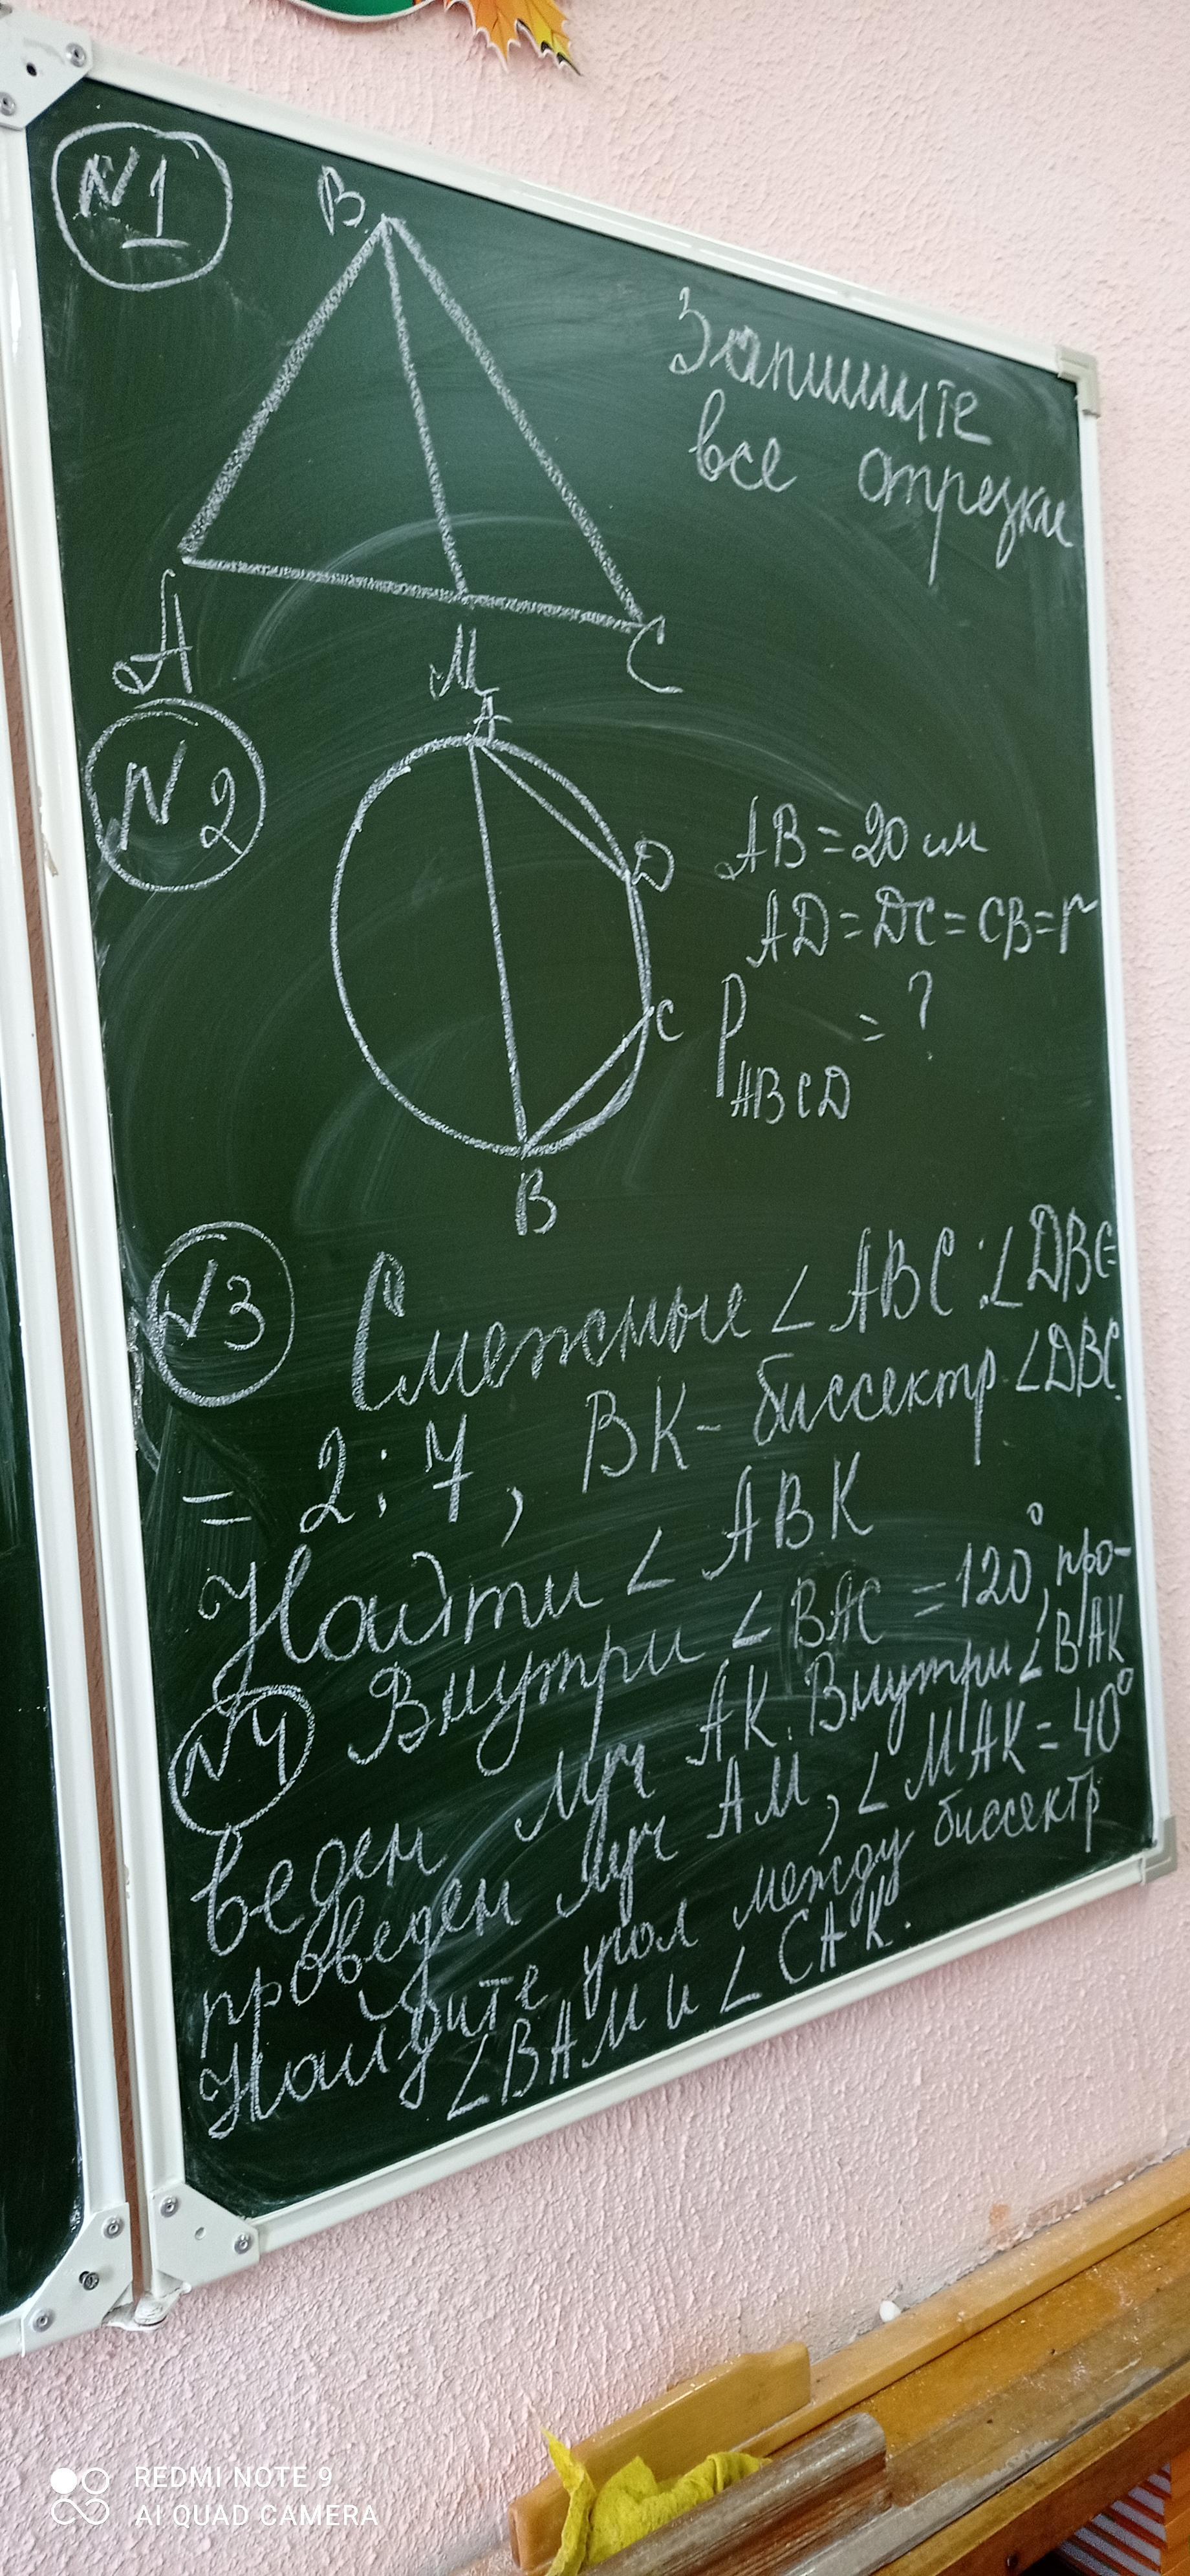 N1
B
Запишите
все отрезки
A
M
C
N2
A
D
AB = 20 см
AD = DC = CB = r
C
P ABCD = ?
B
N3 Смежные ∠ABC : ∠DBC =
= 2 : 7, BK - биссектр ∠DBC.
Найти ∠ABK
N4 Внутри ∠BAC = 120°, про-
веден луч AK. Внутри ∠BAK
проведен луч AM, ∠MAK = 40°
Найдите угол между биссектр
∠BAM и ∠CAK.
REDMI NOTE 9
AI QUAD CAMERA